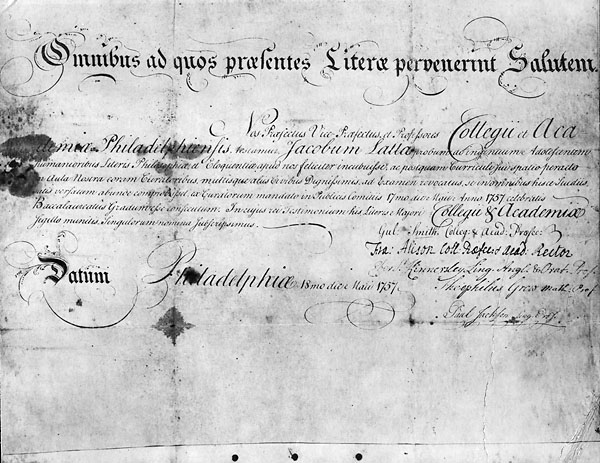 Omnibus ad quos præsentes Literæ pervenerint Salutem.
Nos Præfectus Vice-Præfectus, et Professores Collegii et Aca
demiæ Philadelphiensis, testamur, Jacobum Latta probum ac ingenuum Adolescentem
humanioribus Literis Philosophiæ et Eloquentiæ apud nos feliciter incubuisse, ac postquam Curriculi sui spatio peracto
in Aula Nostra coram Curatoribus, multisque aliis Civibus Dignissimis, ad Examen revocatus, se in omnibus hisce Studiis,
satis versatum abunde comprobasset, ex Curatorum mandato in Publicis Comitiis 17mo die Maii Anno 1757 celebratis
Baccalaureatus Gradum esse consecutum. In cujus rei Testimonium his Literis Majori Collegii & Academiæ
Sigillo munitis, Singulorum nomina subscripsimus.
Gul. Smith Colleg: & Acad: Præfec:
Fra: Alison Coll. Præfec: Acad. Rector
Kinnersley Ling. Angl. & Orat. Prof.
Datum Philadelphiæ 18mo die Maii 1757.
Theophilus Grew math. Prof.
Paul Jackson Ling. Prof.